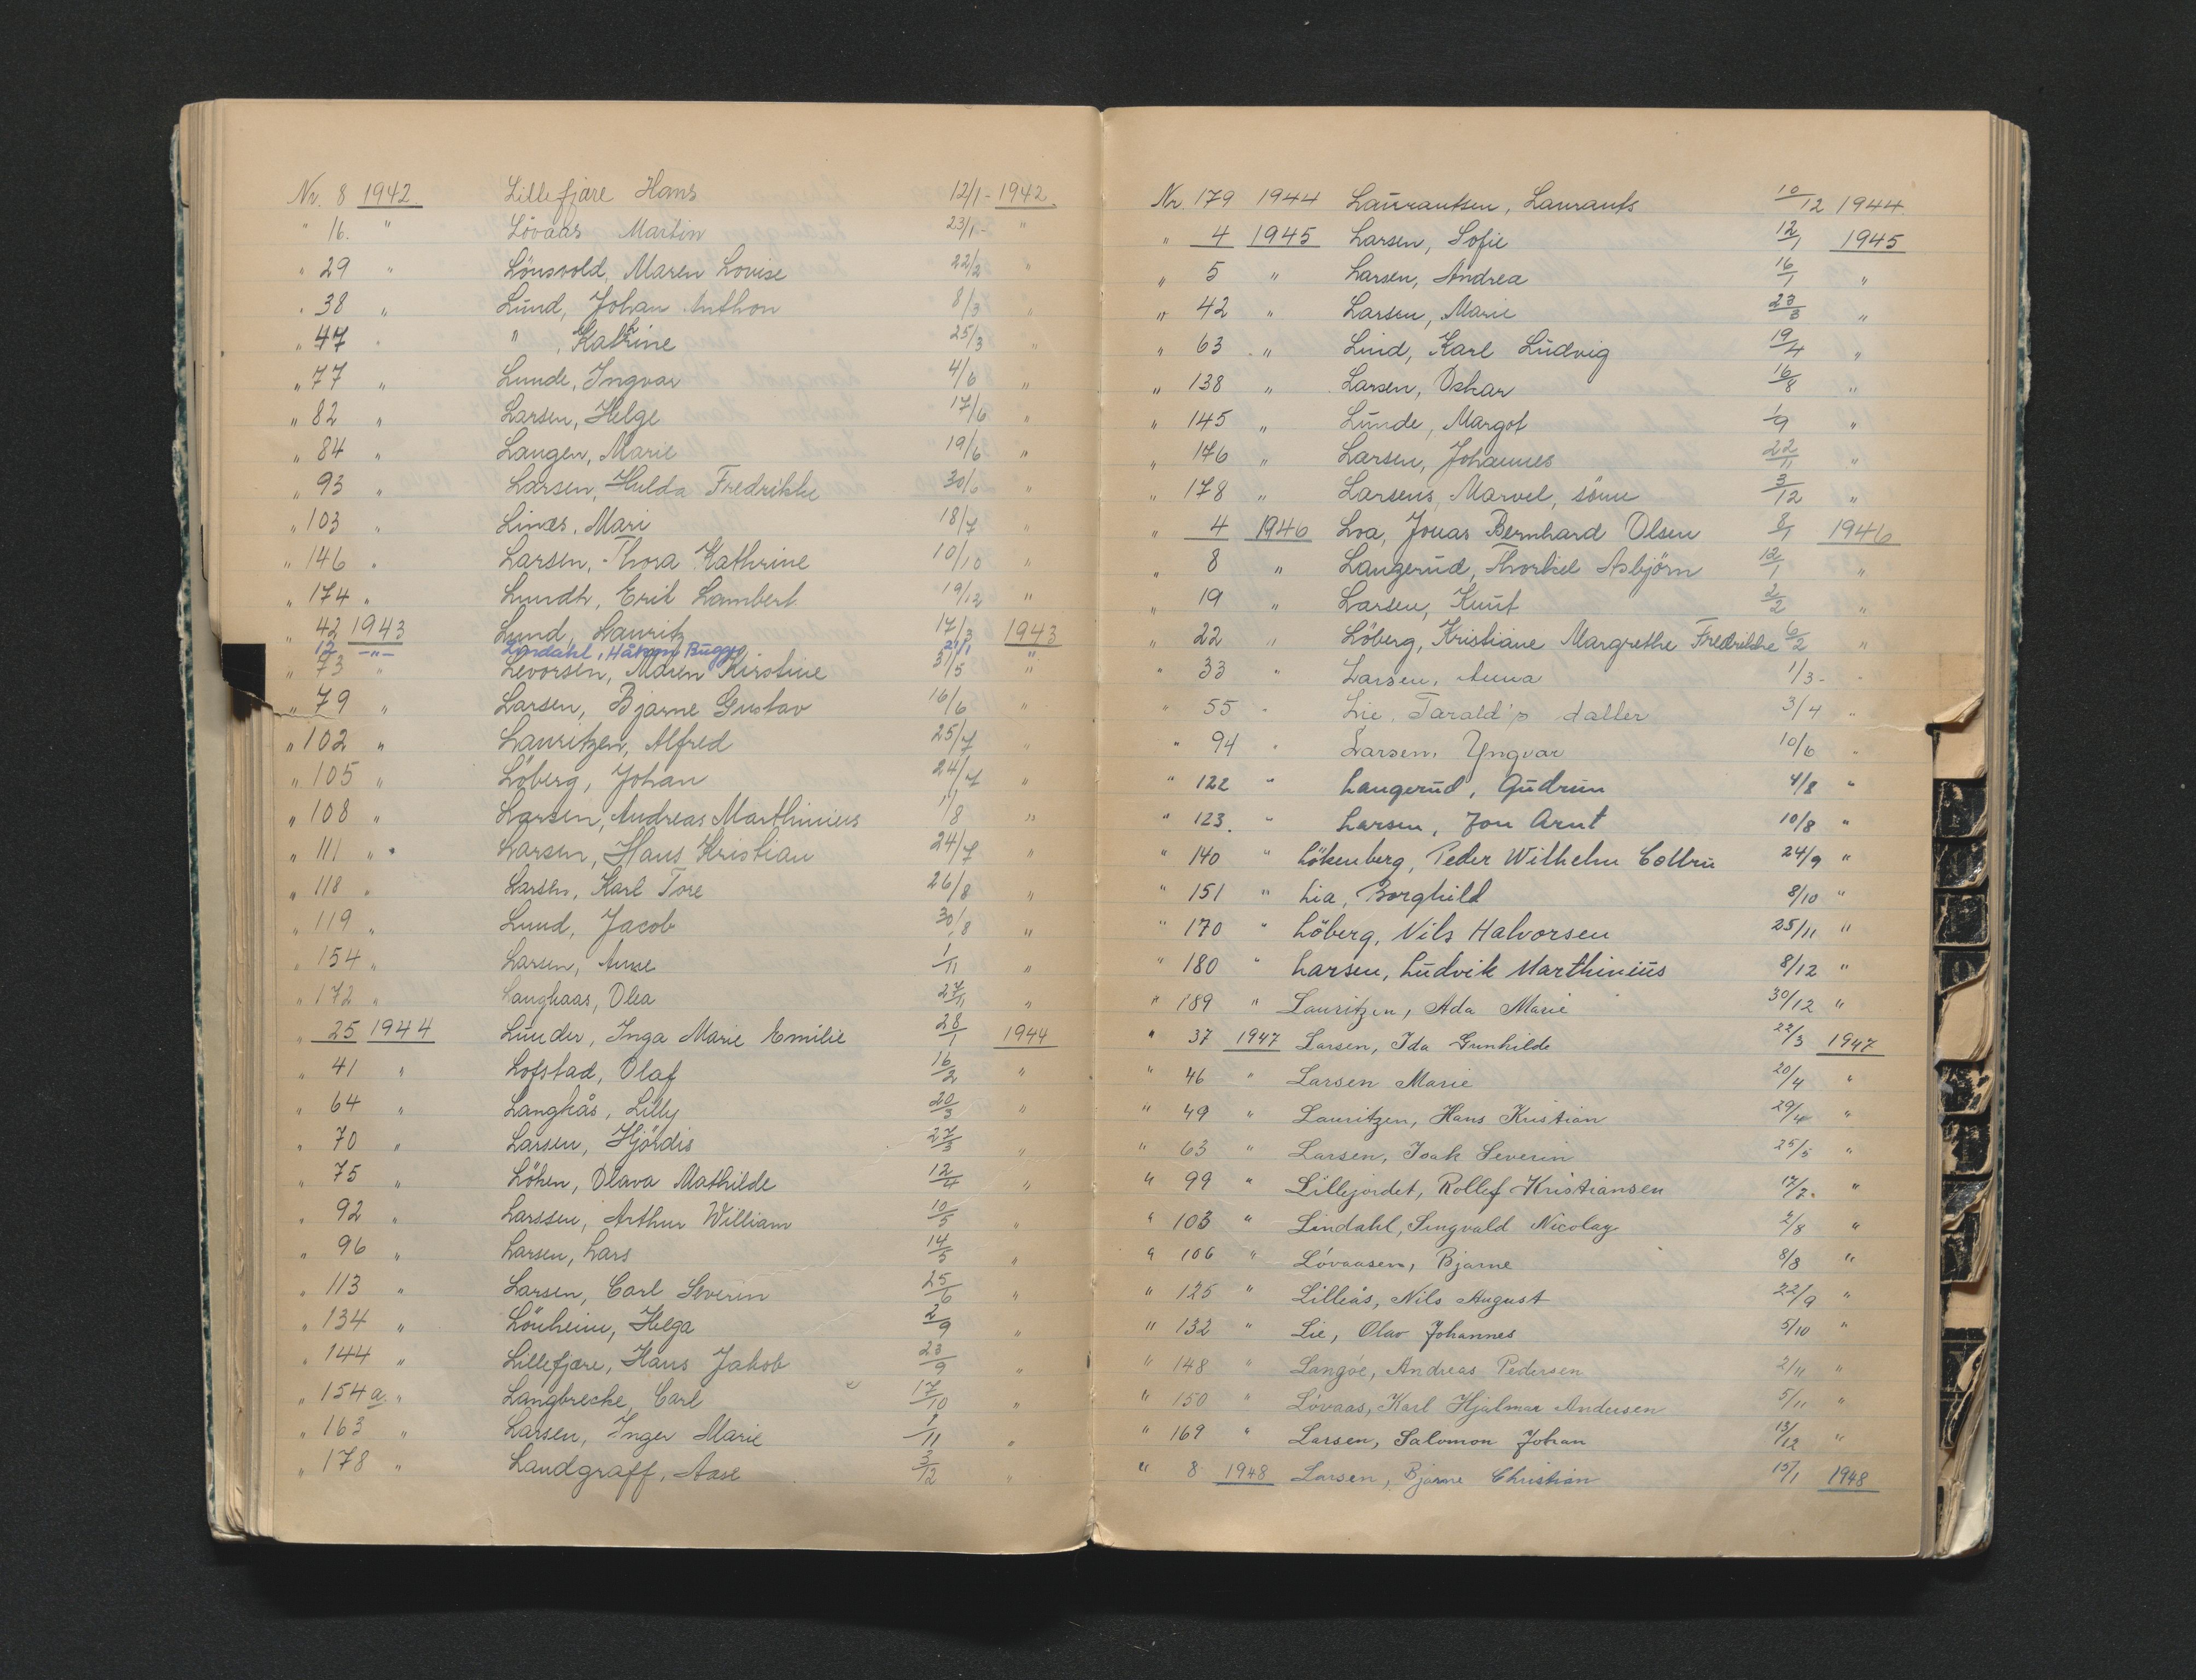 Nr. 8 1942 Lillefjære Hans 12/1 - 1942.
" 16. " Lövaas Martin 23/1 - "
" 29 " Lönsvold, Maren Lovise 22/2 "
" 38 " Lund, Johan Anthon 8/3 "
" 47 " " , Kathrine 25/3 "
" 77 " Lunde, Ingvar 4/6 "
" 82 " Larsen, Helge 17/6 "
" 84 " Langen, Marie 19/6 "
" 93 " Larsen, Hulda Fredrikke 30/6 "
" 103 " Linæs, Mari 18/7 "
" 146 " Larsen, Thora Kathrine 10/10 "
" 174 " Lundh, Erik Lambert 19/12 "
" 42 1943 Lund, Lauritz 17/3 1943
12 -"- Lindahl, Håkon Bugge 21/1 "
" 73 " Levorsen, Maren Kirstine 31/5 "
" 79 " Larsen, Bjarne Gustav 16/6 "
" 102 " Lauritzen, Alfred 25/7 "
" 105 " Löberg, Johan 24/7 "
" 108 " Larsen, Andreas Marthinius 11/8 "
" 111 " Larsen, Hans Kristian 24/7 "
" 118 " Larsen, Karl Tore 26/8 "
" 119 " Lund, Jacob 30/8 "
" 154 " Larsen, Anne 1/11 "
" 172 " Langhaas, Olea 27/11 "
" 25 1944 Lunder, Inga Marie Emilie 28/1 1944
" 41 " Lofstad, Olaf 16/2 "
" 64 " Langhås, Lilly 20/3 "
" 70 " Larsen, Hjördis 27/3 "
" 75 " Löken, Olava Mathilde 12/4 "
" 92 " Larssen, Arthur William 10/5 "
" 96 " Larsen, Lars 14/5 "
" 113 " Larsen, Carl Severin 25/6 "
" 134 " Lönheim, Helga 2/9 "
" 144 " Lillefjære, Hans Jakob 23/9 "
" 154 a. " Langbrecke, Carl 17/10 "
" 163 " Larsen, Inger Marie 1/11 "
" 178 " Landgraff, Aase 3/12 "
Nr. 179 1944 Laurantsen, Laurants 10/12 1944.
" 4 1945 Larsen, Sofie 12/1 1945
" 5 " Larsen, Andrea 16/1 "
" 42 " Larsen, Marie 23/3 "
" 63 " Lind, Karl Ludvig 19/4 "
" 138 " Larsen, Oskar 16/8 "
" 145 " Lunde, Margot 1/9 "
" 176 " Larsen, Johannes 22/11 "
" 178 " Larsens, Marvel, sönn 3/12 "
" 4 1946 Loa, Jonas Bernhard Olsen 8/1 1946
" 8 " Langerud, Thorkel Asbjörn 12/1 "
" 19 " Larsen, Knut 2/2 "
" 22 " Löberg, Kristiane Margrethe Fredrikke 6/2 "
" 33 " Larsen, Anna 1/3 - "
" 55 " Lie, Tarald's datter 3/4 "
" 94 " Larsen, Yngvar 10/6 "
" 122 " Langerud, Gudrun 4/8 "
" 123. " Larsen, Jon Arnt 10/8 "
" 140 " Lökenberg, Peder Wilhelm Collru 24/9 "
" 151 " Lia, Borghild 8/10 "
" 170 " Löberg, Nils Halvorsen 25/11 "
" 180 " Larsen, Ludvik Marthinius 8/12 "
" 189 " Lauritzen, Ada Marie 30/12 "
" 37 1947 Larsen, Ida Gunhilde 22/3 1947
" 46 " Larsen Marie 20/4 "
" 49 " Lauritzen, Hans Kristian 29/4 "
" 63 " Larsen, Isak Severin 25/5 "
" 99 " Lillejordet, Rollef Kristiansen 17/7. "
" 103 " Lindahl, Singvald Nicolay 2/8 "
" 106 " Lövaasen, Bjarne 8/8 "
" 125 " Lilleås, Nils August 22/9 "
" 132 " Lie, Olav Johannes 5/10 "
" 148 " Langöe, Andreas Pedersen 2/11 "
" 150 " Lövaas, Karl Hjalmar Andersen 5/11 "
" 169 " Larsen, Salomon Johan 13/12 "
" 8 1948 Larsen, Bjarne Christian 15/1 1948